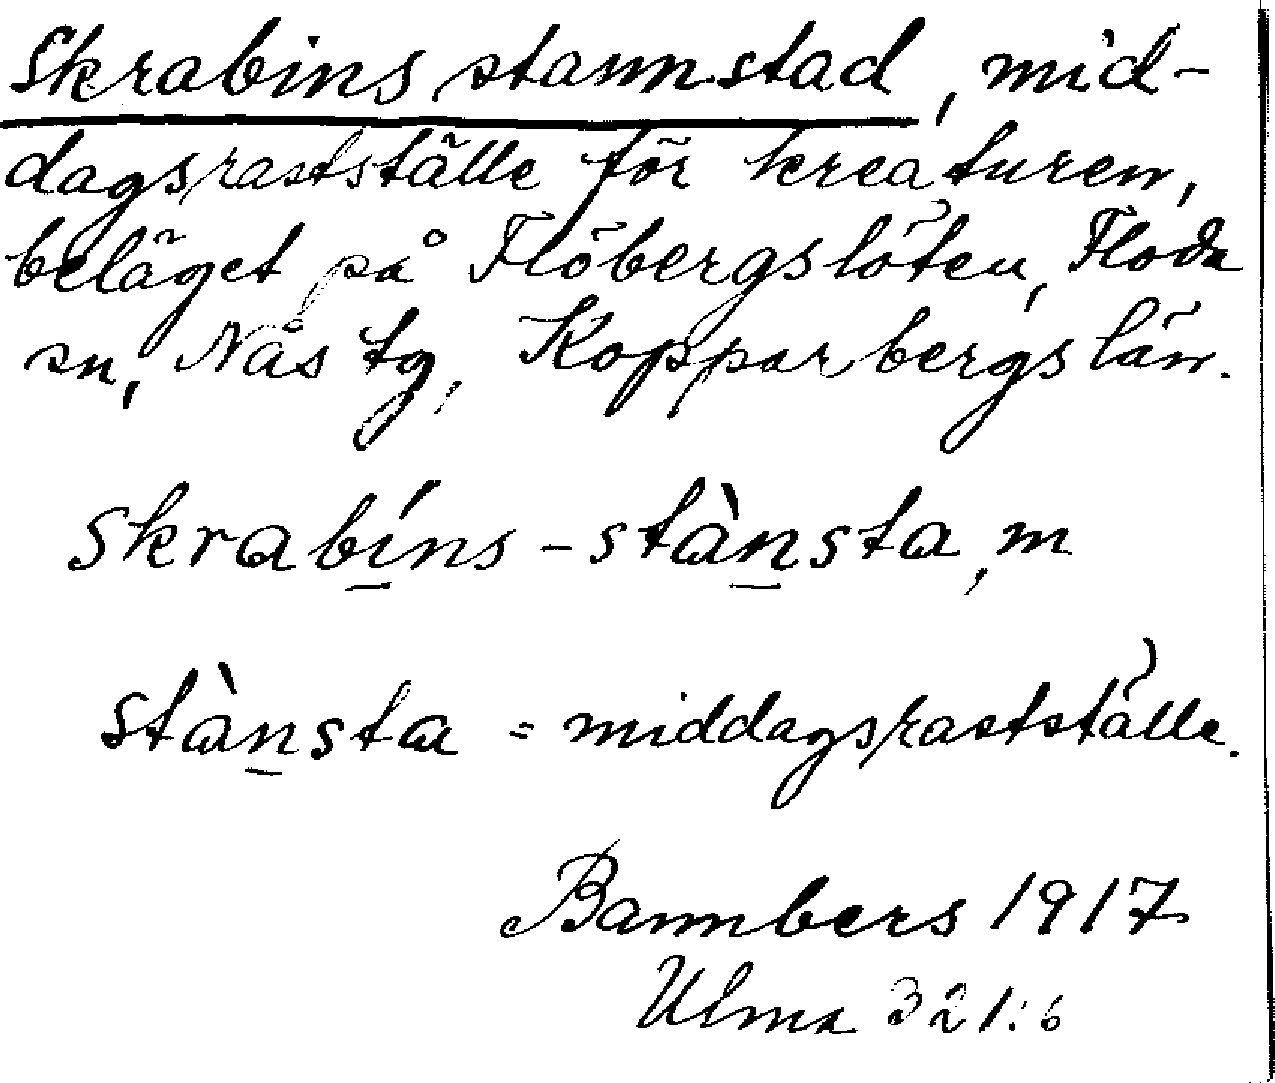 Skrabins stannstad, mid-
dagsrastställe för kreaturen,
beläget på Flöbergslöten, Floda
sn, Nås tg, Kopparbergs län.
skrabíns-stànsta, m
stànsta = middagsrastställe.
Bannbers 1917
Ulma 321:6